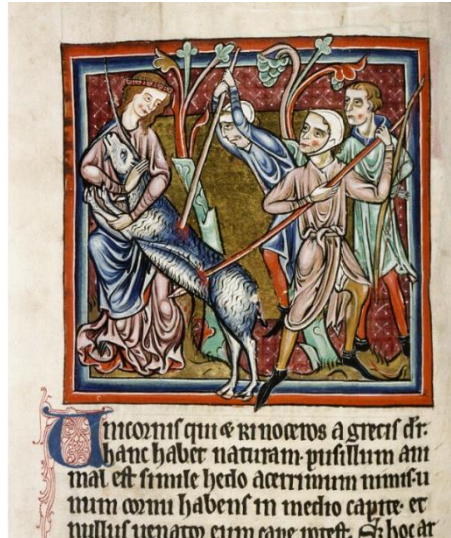 Unicornis qui & rinoceros a grecis dr̄.
hanc habet naturam. pusillum ani
mal est simile hedo acerrimum nimis. u
num cornu habens in medio capite. et
nullus uenator eum cape potest. Sꝫ hoc ar